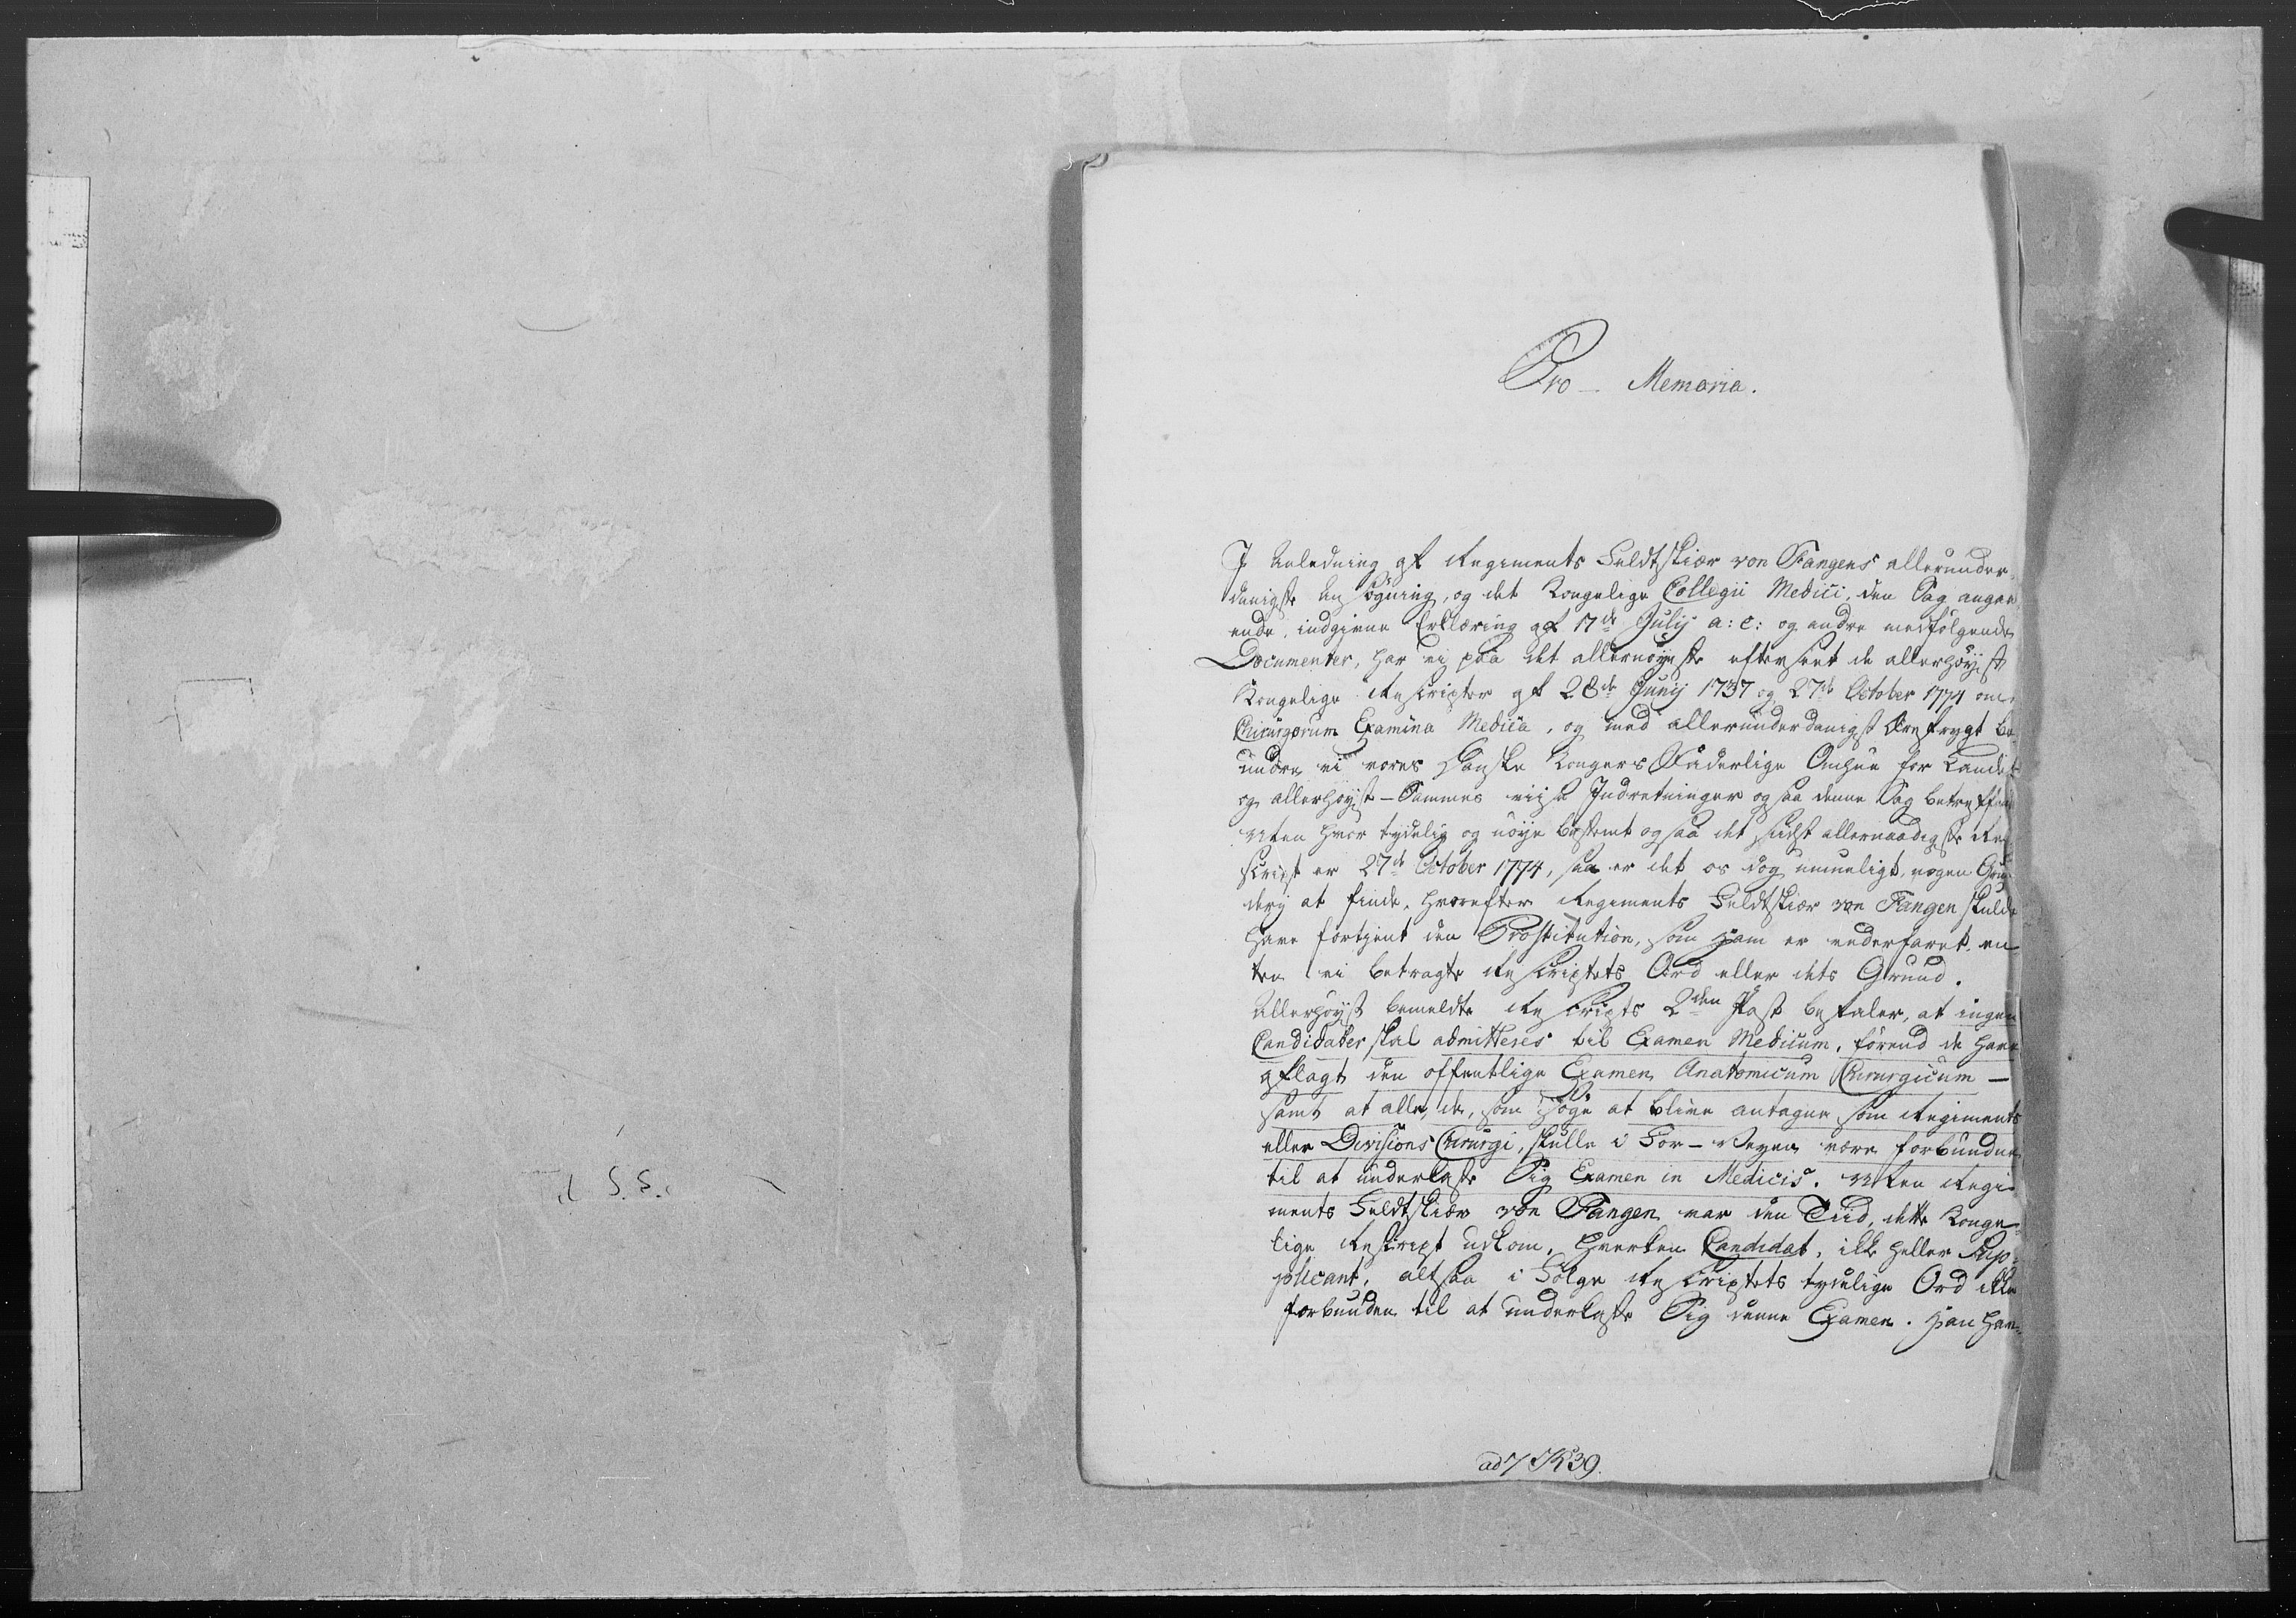 Pro Memoria.
I Anledning af Regiments Feldtskiær von Fangens allerunder-
danigste Ansøgning, og det Kongelige Collegii Medici, den Sag angaa-
ende, indgivne Erklæring af 17de Julij a: c: og andre medfølgende
Documenter, har vi paa det allernøyeste efterseet de allerhøyst
Kongelige Rescripter af 28de Junij 1737 og 27de October 1774 om
Chirurgorum Examina Medica, og med allerunderdanigst Ærefrygt be-
undre vi vores Danske Kongers Faderlige Omhue for Landet
og allerhøyst-Sammes viise Indretninger ogsaa denne Sag betreffende
Men hvor tydelig og nøye bestemt ogsaa det sidst allernaadigste Re-
script er 27de October 1774, saa er det os dog umueligt, nogen Grun-
derj at finde, hvorefter Regiments Feldtskiær von Fangen skulde
have fortient den Prostitution, som ham er vederfaret, en-
ten vi betragte Rescriptets Ord eller dets Grund.
Allerhøyst bemeldte Rescripts 2den Post befaler, at ingen
Candidater skal admitteres til Examen Medicum, førend de have
aflagt den offentlige Examen Anatomicum Chirurgicum —
samt at alle de, som søge at blive antagne som Regiments
eller Divisions Chirurgi, skulle i For-Veyen være forbundne
til at underkaste Sig Examen in Medicis. Men Regi-
ments Feldtskiær von Fangen var den Tiid, dette Konge-
lige Rescript udkom, hverken Candidat, ikke heller Sup-
plicant, altsaa i Følge Rescriptets tydelige Ord ikke
forbunden til at underkaste Sig denne Examen. Han hav-
ad 7 R 39.
til S. S.